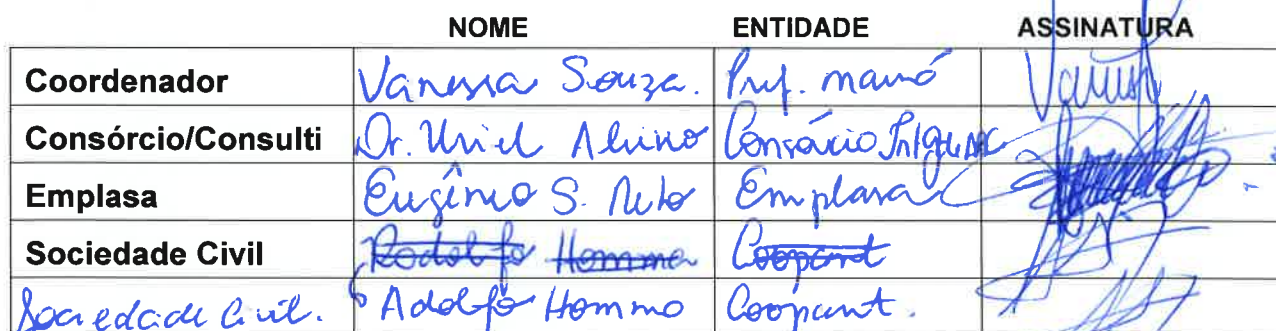 NOME ENTIDADE ASSINATURA
Coordenador Vanessa Souza. Pref. mauá
Consórcio/Consulti Dr. Uriel Consórcio
Emplasa Eugênio S. Neto Emplasa
Sociedade Civil Rodolfo Homma Coopant
Sociedade Civil. Adolfo Homma Coopant.